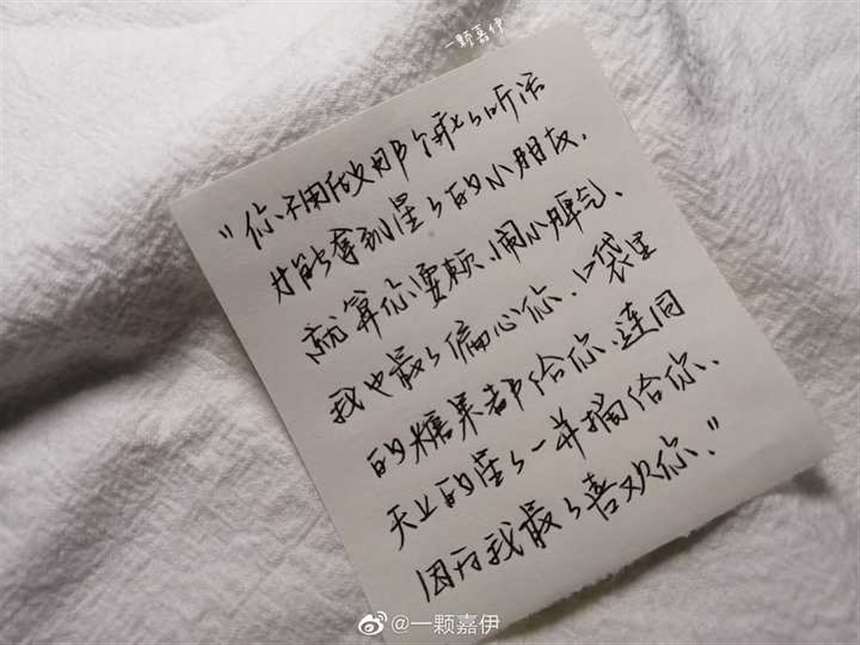 一颗嘉伊
"你不用做那个乖々听话
才能拿到星々的小朋友.
就算你耍赖、闹小脾气、
我也最々偏心你、口袋里
的糖果都给你、连同
天上的星々一并摘给你、
因为我最々喜欢你."
@一颗嘉伊